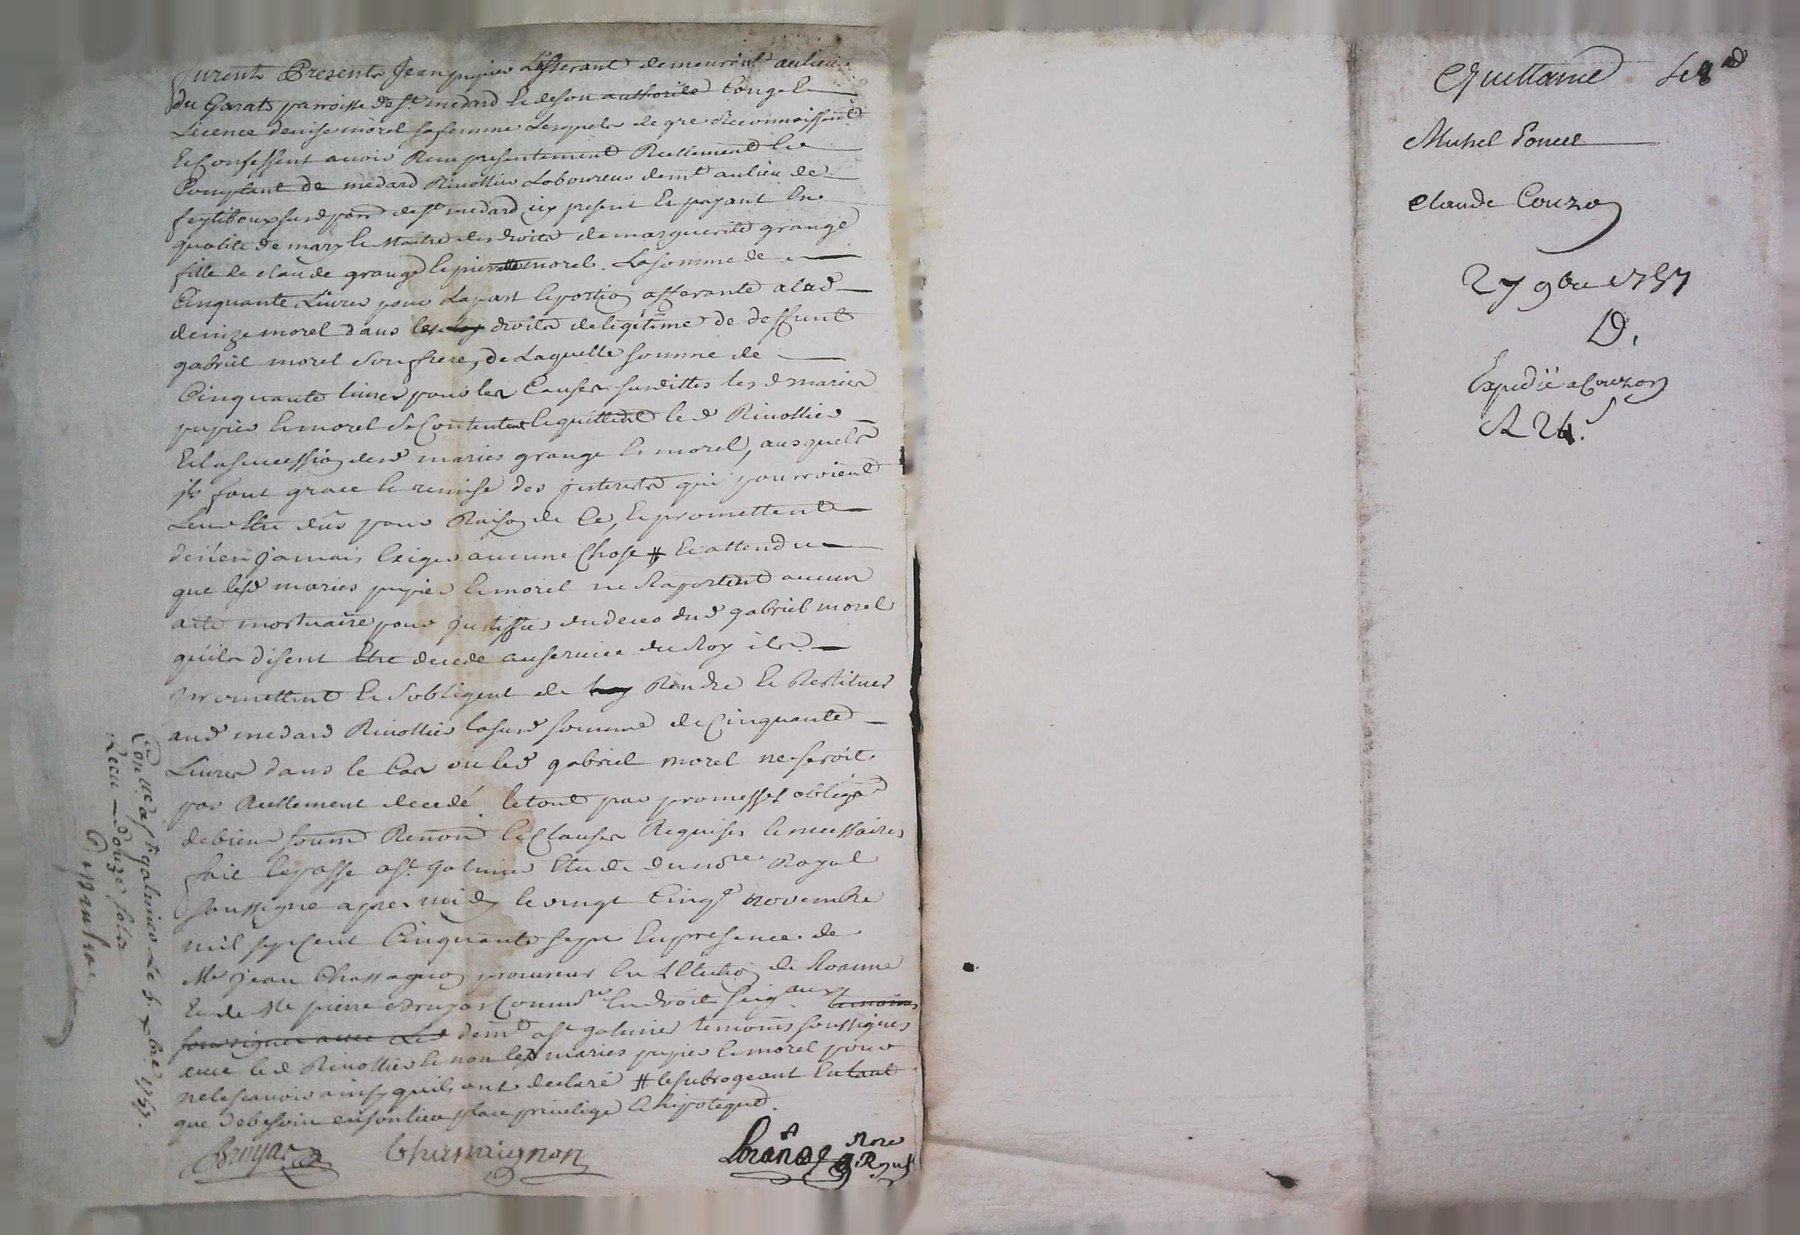 Furent Presents Jean pupier Tisserant demeurant au lieu
du Garat parroisse de St medard & de son authorité Conge &
Licence denise morel sa femme Lesquels de gré Reconnoissent
& Confessent avoir Reçu presentement Reellement &
Comptant de medard Rivollier Laboureur demt au lieu de
susd parr de St medard icy present & payant En
qualité de mary & Maitre des droits de marguerite grange
fille de claude grange & pierrette morel. La somme de
Cinquante Livres pour La part & portion afferante a lad
denize morel dans les droits de legitime de deffunt
gabriel morel Son frere, de Laquelle somme de
Cinquante livres pour les Causes susdittes les d maries
pupier & morel se Contentent & quittent le d Rivollier
& la succession desd maries grange & morel, ausquels
ils font grace & remise des jnterets qui pourroient
Leur Etre dûs pour Raison de Ce, & promettent
de n'en jamais Exiger aucune Chose # & attendu
que lesd maries pupier & morel ne Raportent aucun
acte mortuaire pour justiffier du deces dud gabriel morel
qu'ils disent Etre decedé au service du Roy ils
promettent & s'obligent de Rendre & Restituer
aud medard Rivollier la susd somme de Cinquante
Livres dans le Cas ou led gabriel morel ne seroit
pas Reellement decedé le tout par promesses obligaon
de biens soum Renon & Clauses Requises & necessaires
fait & passé a St galmier Etude du nore Royal
soussigné apres midy le vingt Cinqe novembre
mil sept Cent Cinquante sept En presence de
Me jean Chassagnon procureur En L'Election de Roanne
& de Me pierre Bruyas Commre En droit Seigaux temoins
soussignes avec Le d demt a St galmier temoins soussignes
avec le d Rivollier & non lesd maries pupier & morel pour
ne le sçavoir ainsy qu'ils ont declaré # le subrogeant En tant
que de besoin en son lieu place privilege & hipoteque.
Bruyas Chassaignon
Nore
Royal
Conlle a St galmier Le 6 xbre 1757.
Recu douze sols
Quittance de 8
Michel Poncet
Claude Couzon
27 9bre 1757
D.
Expedié a Couzon
R 24 s